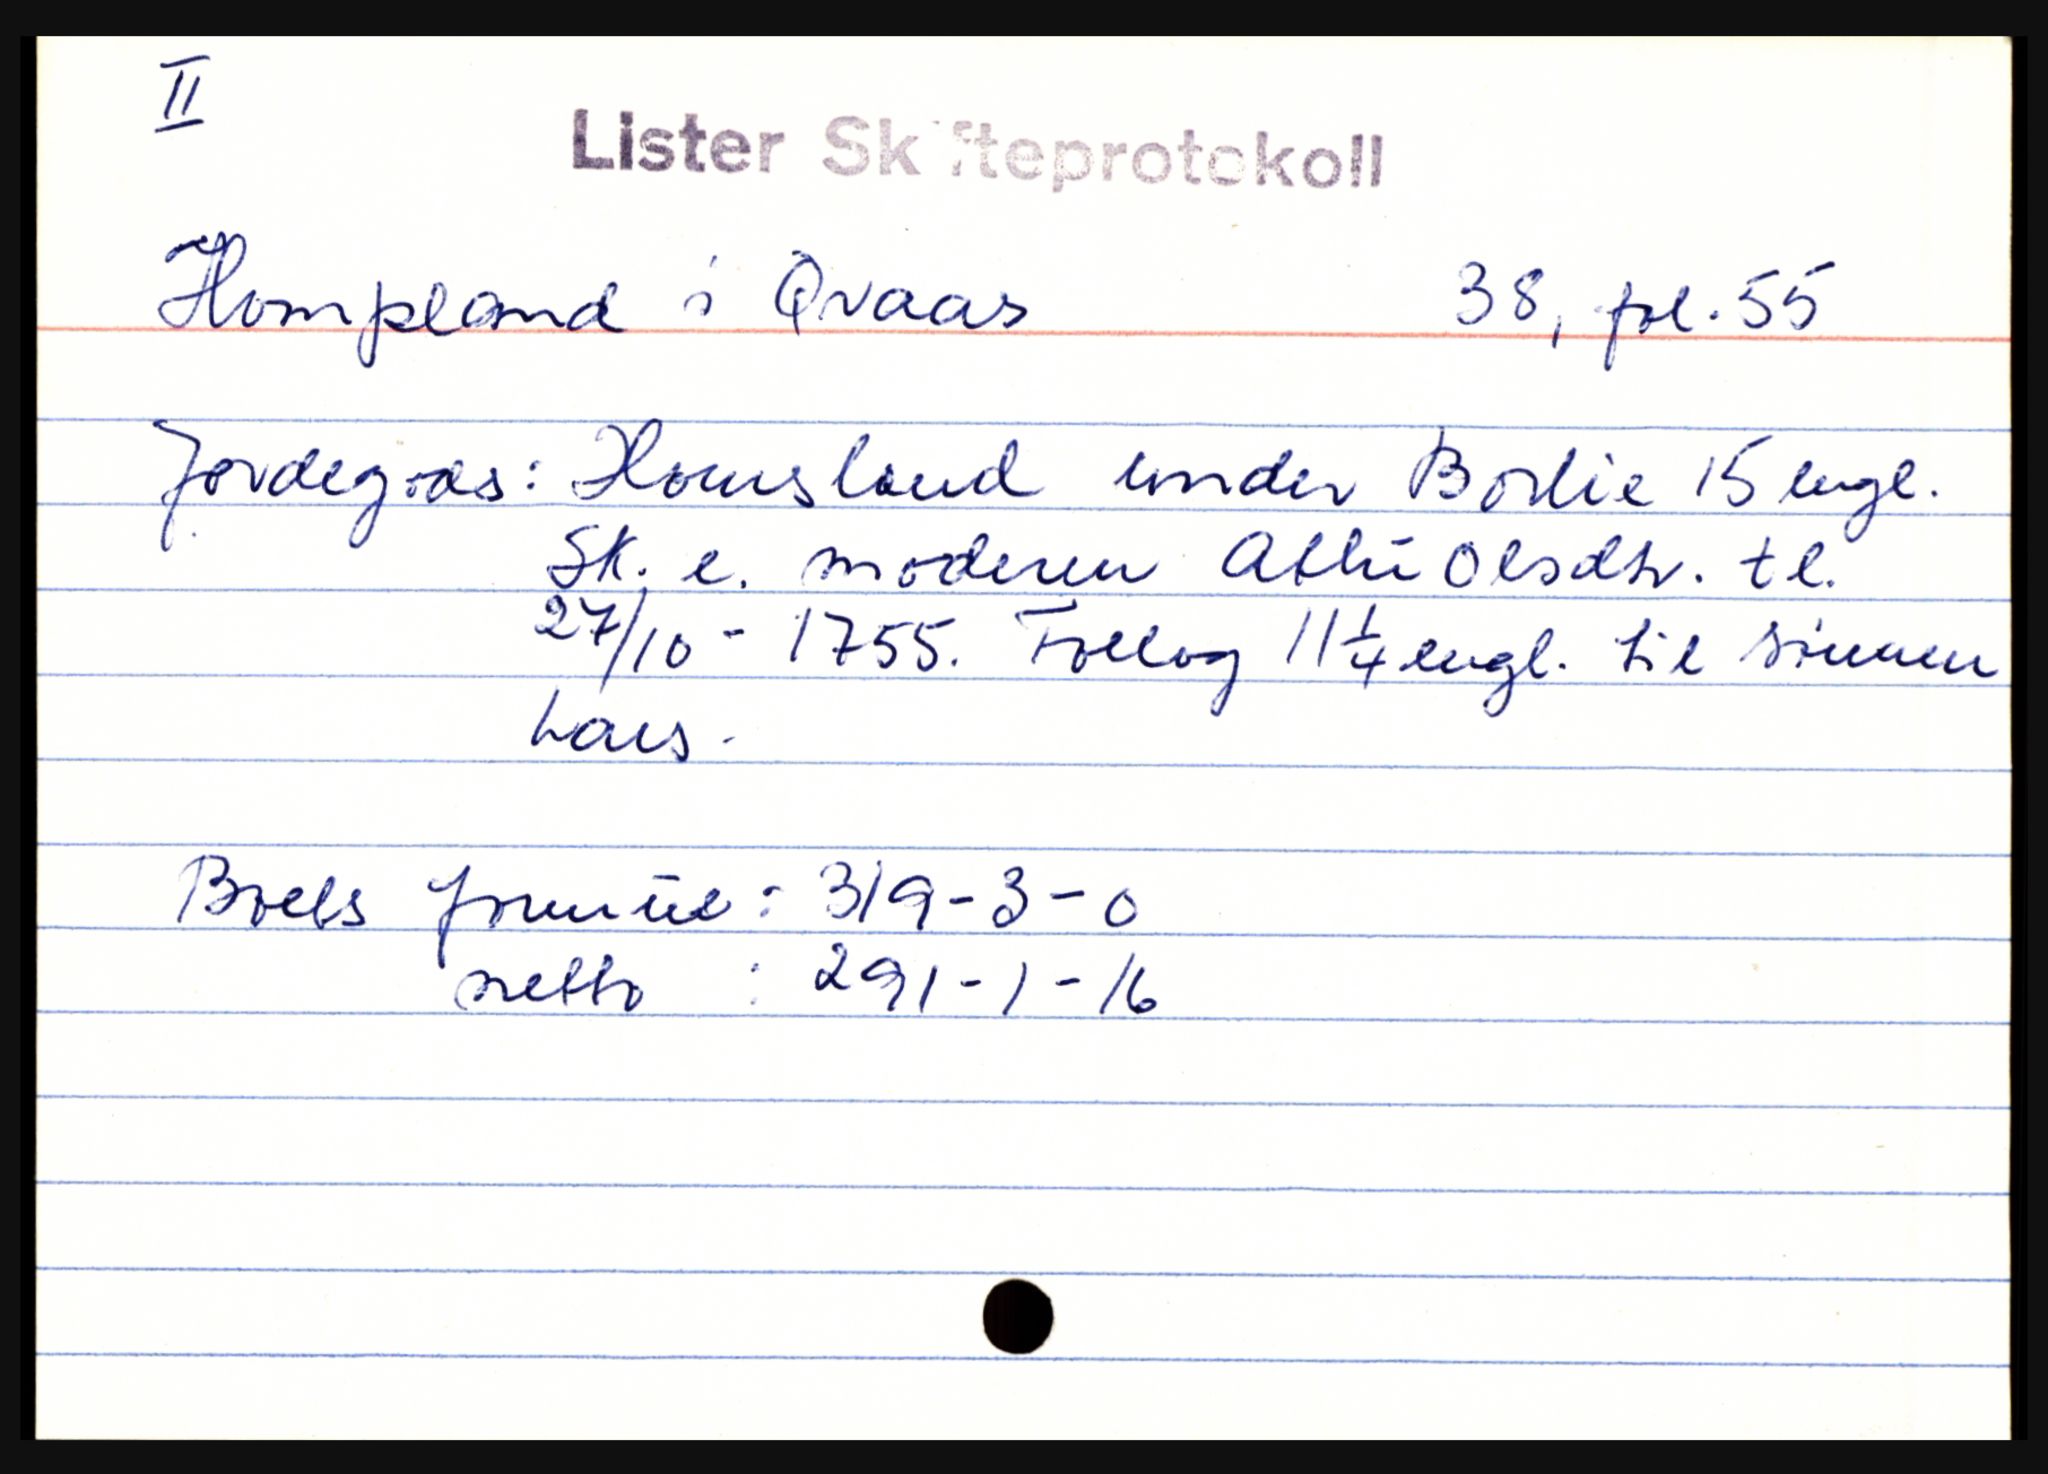 II
Lister Skifteprotokoll
Hompland i Qvaas 38, fol. 55
Jordegods: Homsland under Borlie 15 engl.
Sk. e. moderen Athū Olsdtr. tl.
27/10 - 1755. Follog 11 1/4 engl. til sönnen
Lars.
Boets formūe: 319-3-0
netto : 291-1-16